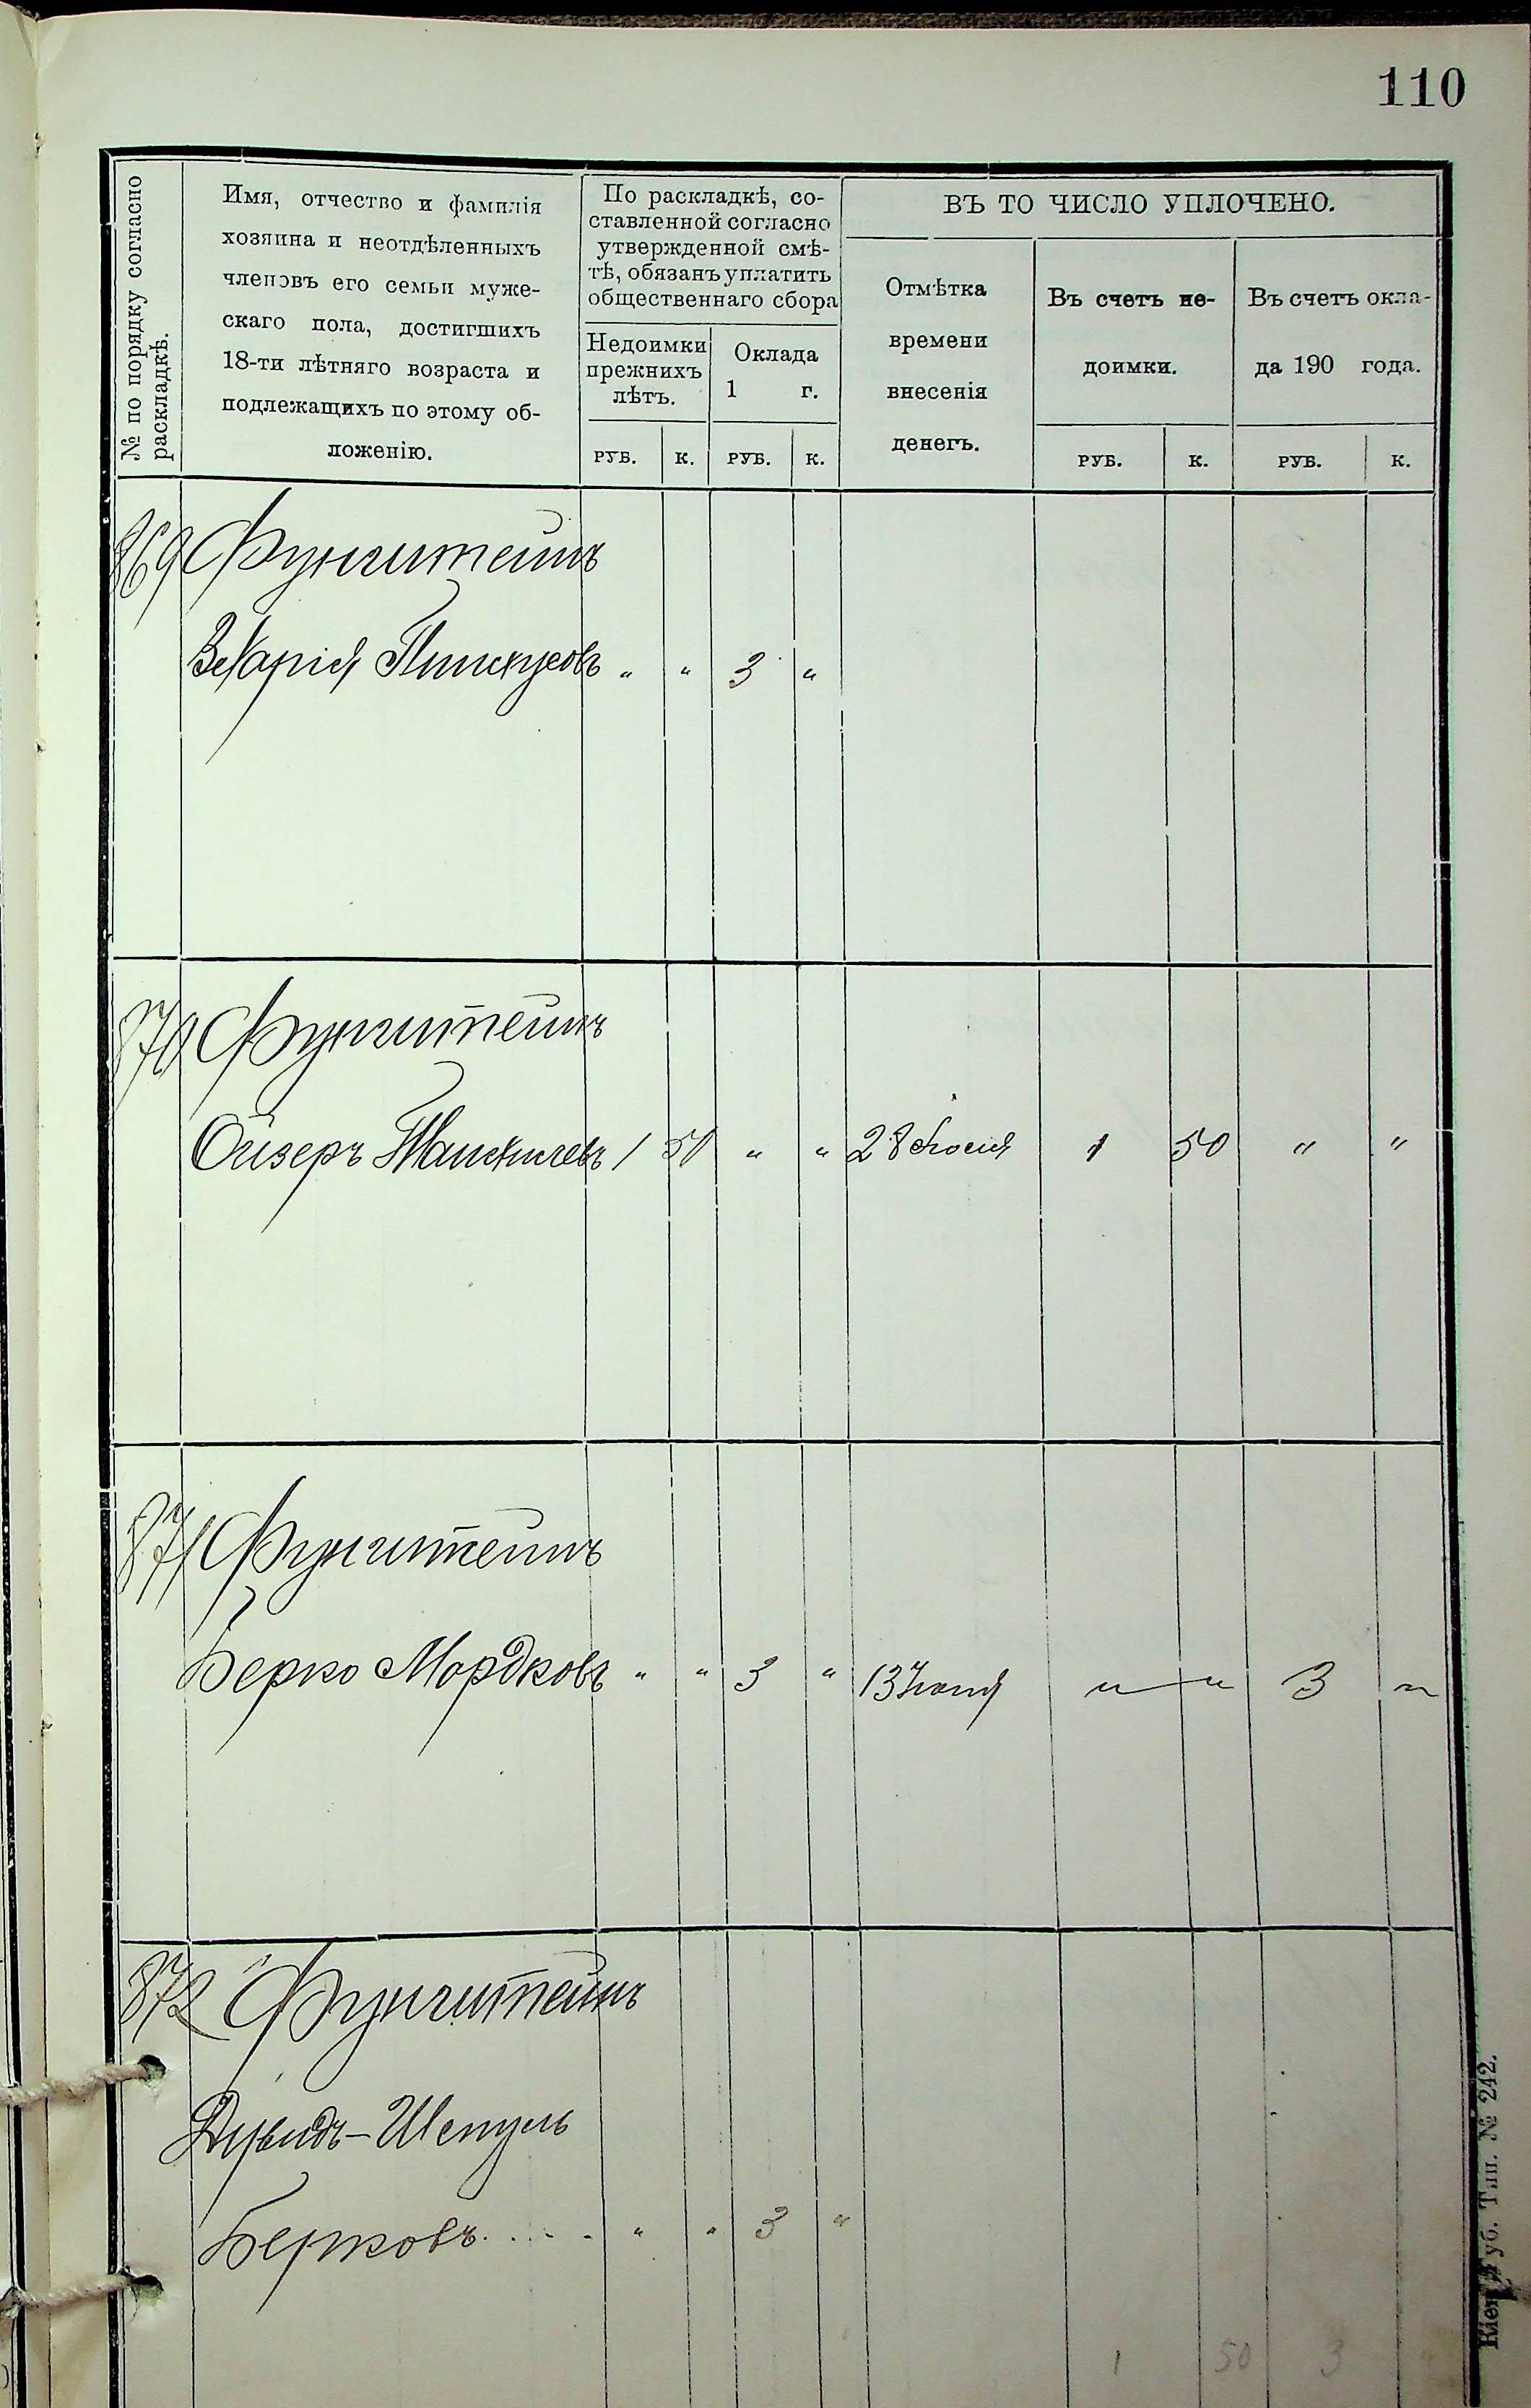 110
№ по порядку согласно
раскладкѣ.
Имя, отчество и фамилія
хозяина и неотдѣленныхъ
членовъ его семьи муже-
скаго пола, достигшихъ
18-ти лѣтняго возраста и
подлежащихъ по этому об-
ложенію.
По раскладкѣ, со-
ставленной согласно
утвержденной смѣ-
тѣ, обязанъ уплатить
общественнаго сбора
Недоимки
прежнихъ
лѣтъ.
Оклада
1 г.
РУБ. К. РУБ. К.
ВЪ ТО ЧИСЛО УПЛОЧЕНО.
Отмѣтка
времени
внесенія
денегъ.
Въ счетъ не-
доимки.
Въ счетъ окла-
да 190 года.
РУБ. К. РУБ. К.
869 Фунштейнъ
Зехарія Пинкусовъ " " 3 "
870 Фунштейнъ
Ойзеръ 1 50 " " 28 1 50 " "
871 Фунштейнъ
Берко Мордковъ " " 3 " 13 Іюня " " 3 "
872 Фунштейнъ
Дувидъ-Шепсель
Берковъ . . . . " " 3 "
1 50 3
Кіев. Губ. Тип. № 242.